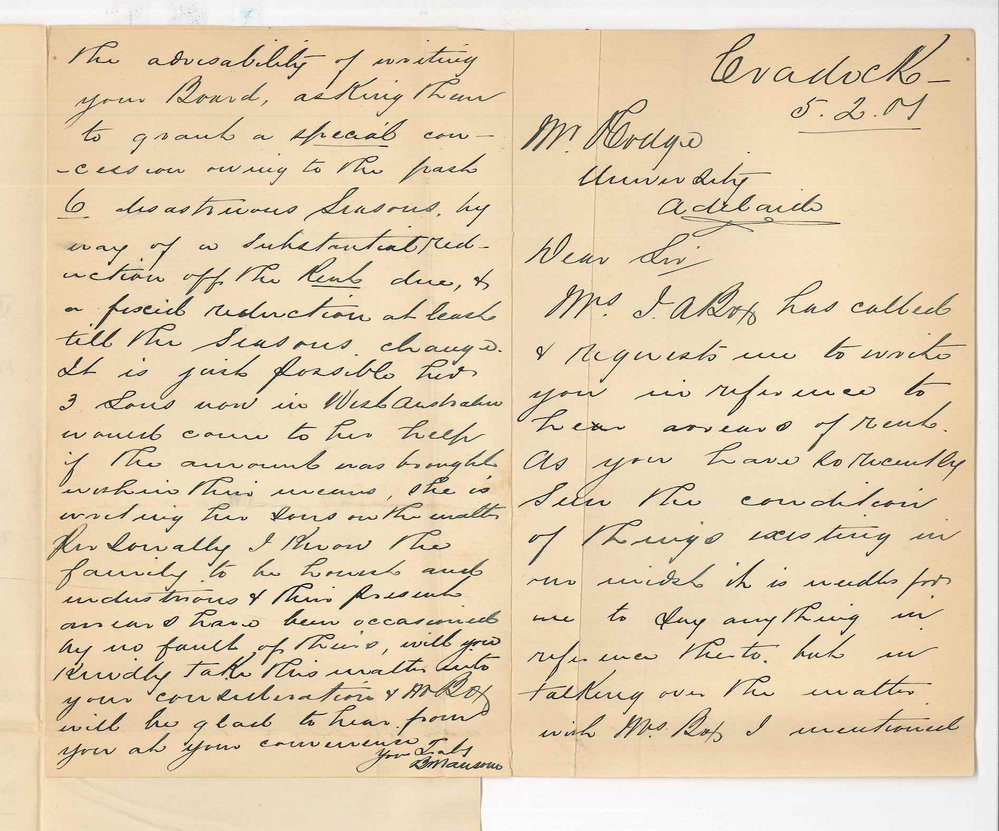 Cradock -
5. 2. 01
Mr Hodge
University
Adelaide
Dear Sir
Mrs J. A Box has called
& requests me to write
you in reference to
hear arears of rent.
As you have so recently
seen the condition
of things existing in
our midst it is needless for
me to say anything in
reference thereto. but in
talking over the matter
with Mrs. Box I mentioned
the advisability of writing
your Board, asking them
to grant a special con-
-cession owing to the past
6 disastrous seasons, by
way of a substantial red-
uction off the Rent due, &
a fixed reduction at least
till the seasons change.
It is just possible her
3 sons now in West Australia
would come to her help
if the amount was brought
within their means, she is
writing her sons on the matter
Personally I know the
family to be honest and
industrious & their present
arears have been occasioned
by no fault of theirs, will you
kindly take this matter into
your consideration & Mrs Box
will be glad to hear from
you at your convenience